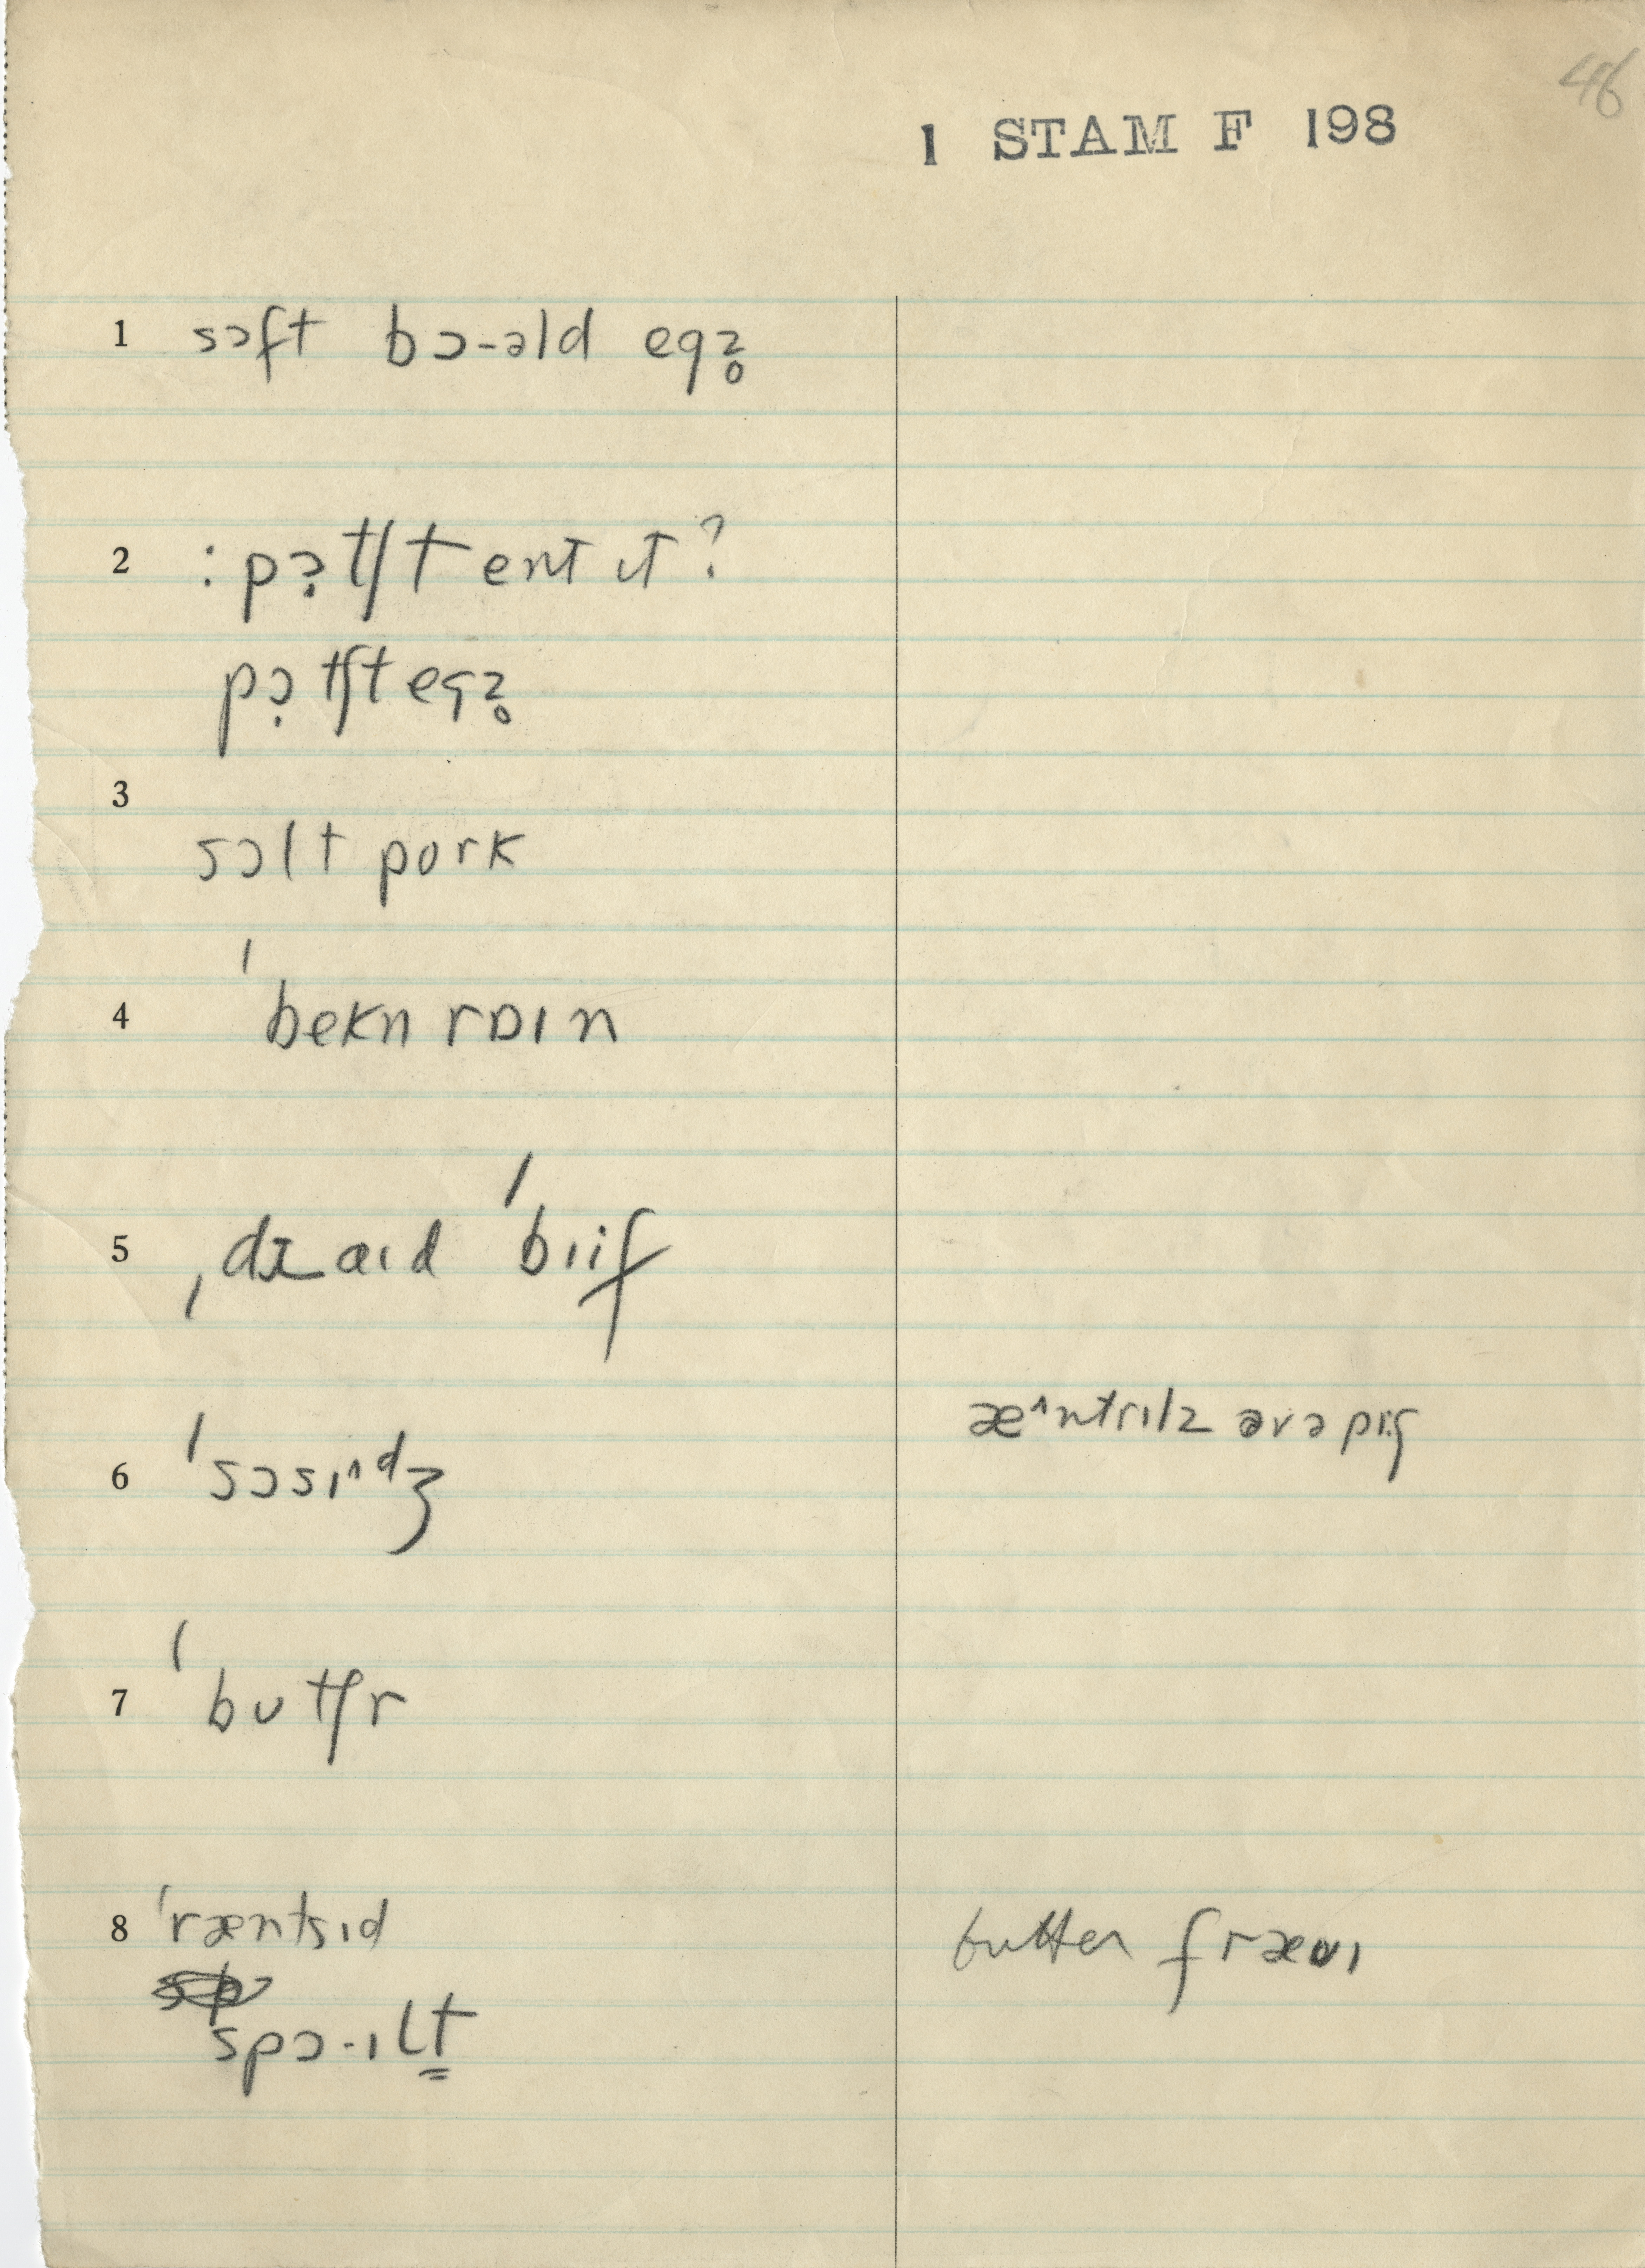 46
1 STAM F 198
1 sɔft bɔ-əld egz̥
2 : pɔ̣tʃt ent ɪt ?
pɔ̣tʃt egz̥
3
sɔlt pork
4 ˈbekn rɒɪn
5 ˌdɪaɪd ˈbiif
æ^ntrɪlz əvə piːg
6 ˈsɔsɪ^dʒ
7 ˈbutʃr
8 ˈræntsɪd
butter fræʊɪ
spɔ-ɪlt̳